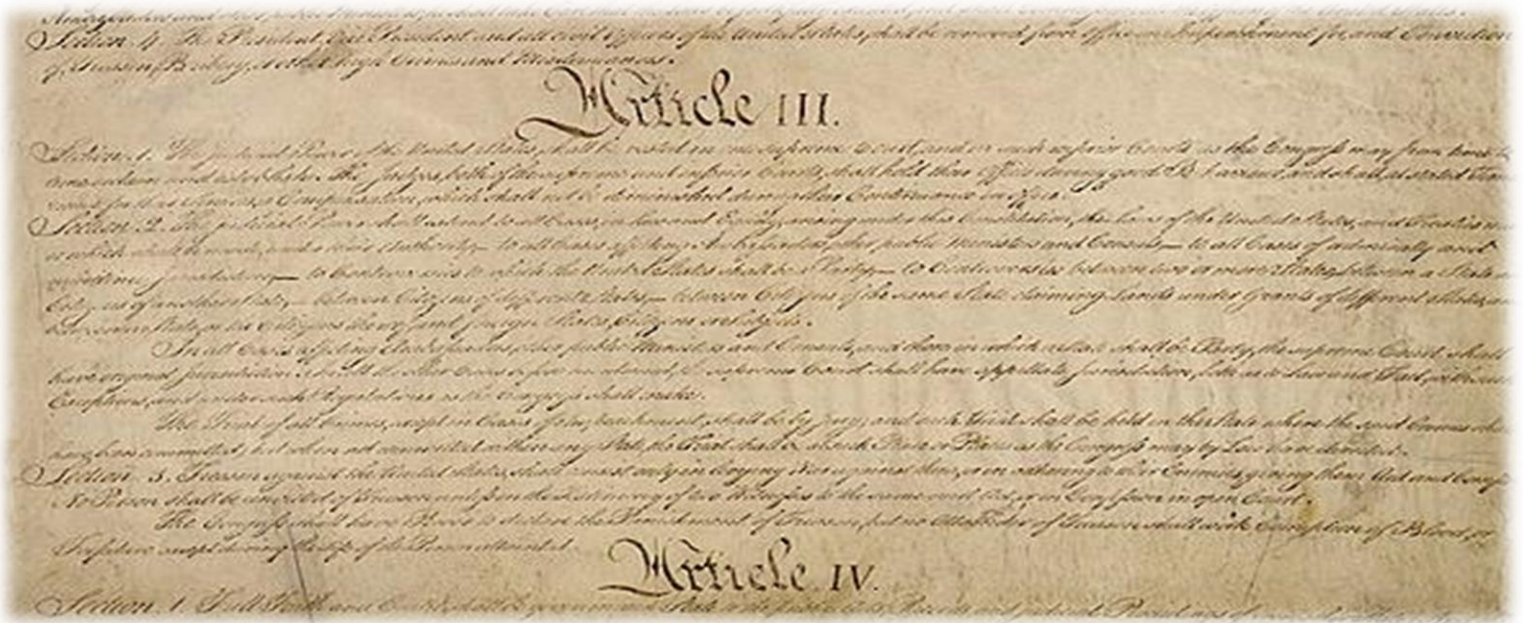 Section. 4. The President, Vice President and all civil Officers of the United States, shall be removed from Office on Impeachment for, and Conviction
of, Treason, Bribery, or other high Crimes and Misdemeanors.
Article III.
Section. 1. The judicial Power of the United States, shall be vested in one supreme Court, and in such inferior Courts as the Congress may from time to
time ordain and establish. The Judges, both of the supreme and inferior Courts, shall hold their Offices during good Behaviour, and shall, at stated Times
receive for their Services, a Compensation, which shall not be diminished during their Continuance in Office.
Section. 2. The judicial Power shall extend to all Cases, in Law and Equity, arising under this Constitution, the Laws of the United States, and Treaties made
or which shall be made, under their Authority;— to all Cases affecting Ambassadors, other public Ministers and Consuls;— to all Cases of admiralty and
maritime Jurisdiction;— to Controversies to which the United States shall be a Party;— to Controversies between two or more States;— between a State and
Citizens of another State,— between Citizens of different States,— between Citizens of the same State claiming Lands under Grants of different States, and
between a State, or the Citizens thereof, and foreign States, Citizens or Subjects.
In all Cases affecting Ambassadors, other public Ministers and Consuls, and those in which a State shall be Party, the supreme Court shall
have original Jurisdiction. In all the other Cases before mentioned, the supreme Court shall have appellate Jurisdiction, both as to Law and Fact, with such
Exceptions, and under such Regulations as the Congress shall make.
The Trial of all Crimes, except in Cases of Impeachment, shall be by Jury; and such Trial shall be held in the State where the said Crimes shall
have been committed; but when not committed within any State, the Trial shall be at such Place or Places as the Congress may by Law have directed.
Section. 3. Treason against the United States, shall consist only in levying War against them, or in adhering to their Enemies, giving them Aid and Comfort
No Person shall be convicted of Treason unless on the Testimony of two Witnesses to the same overt Act, or on Confession in open Court.
The Congress shall have Power to declare the Punishment of Treason, but no Attainder of Treason shall work Corruption of Blood, or
Forfeiture except during the Life of the Person attainted.
Article. IV.
Section. 1. Full Faith and Credit shall be given in each State to the public Acts, Records, and judicial Proceedings of every other State